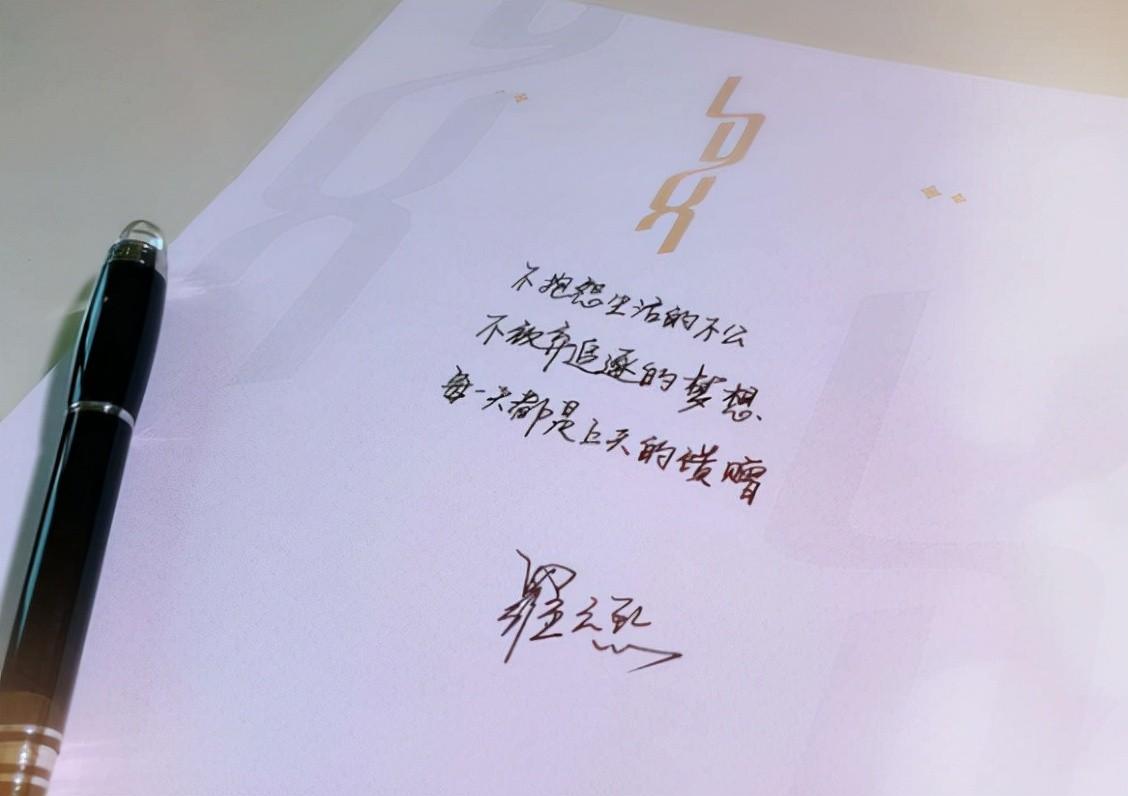 LDX
不抱怨生活的不公
不放弃追逐的梦想
每一天都是上天的馈赠